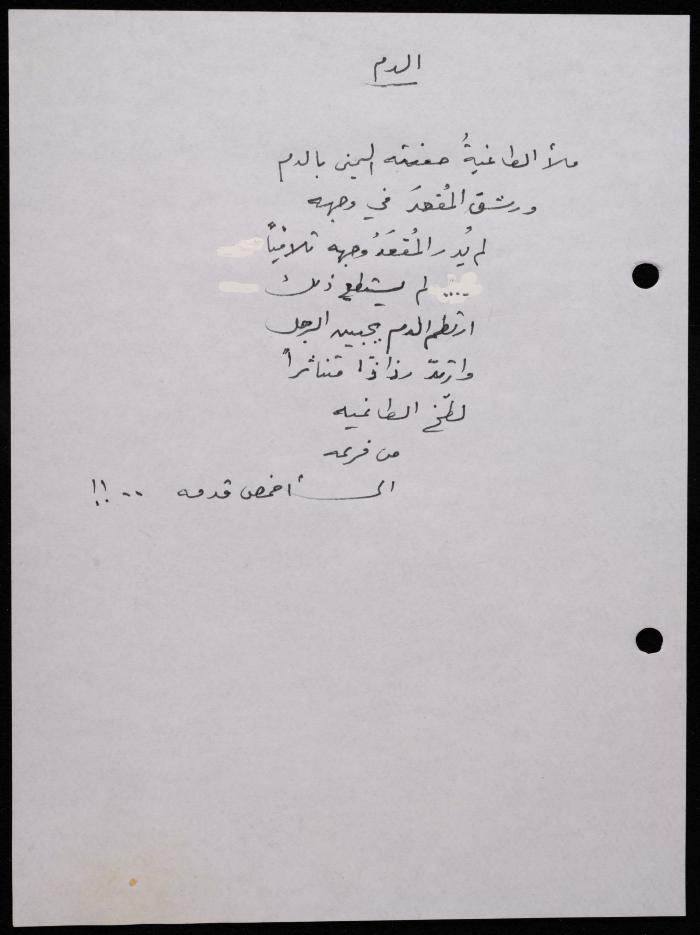 الدم
ملأ الطاغيةُ حفنته اليمنى بالدم
ورشق المُقعدَ في وجهه
لم يُدر المُقعَدُ وجهه تلافياً
.... لم يستطع ذلك
ارتطم الدم بجبين الرجل
وارتدّ رذاذاً متناثراً
لطّخ الطاغيه
من فرعه
الى أخمص قدمه ..!!